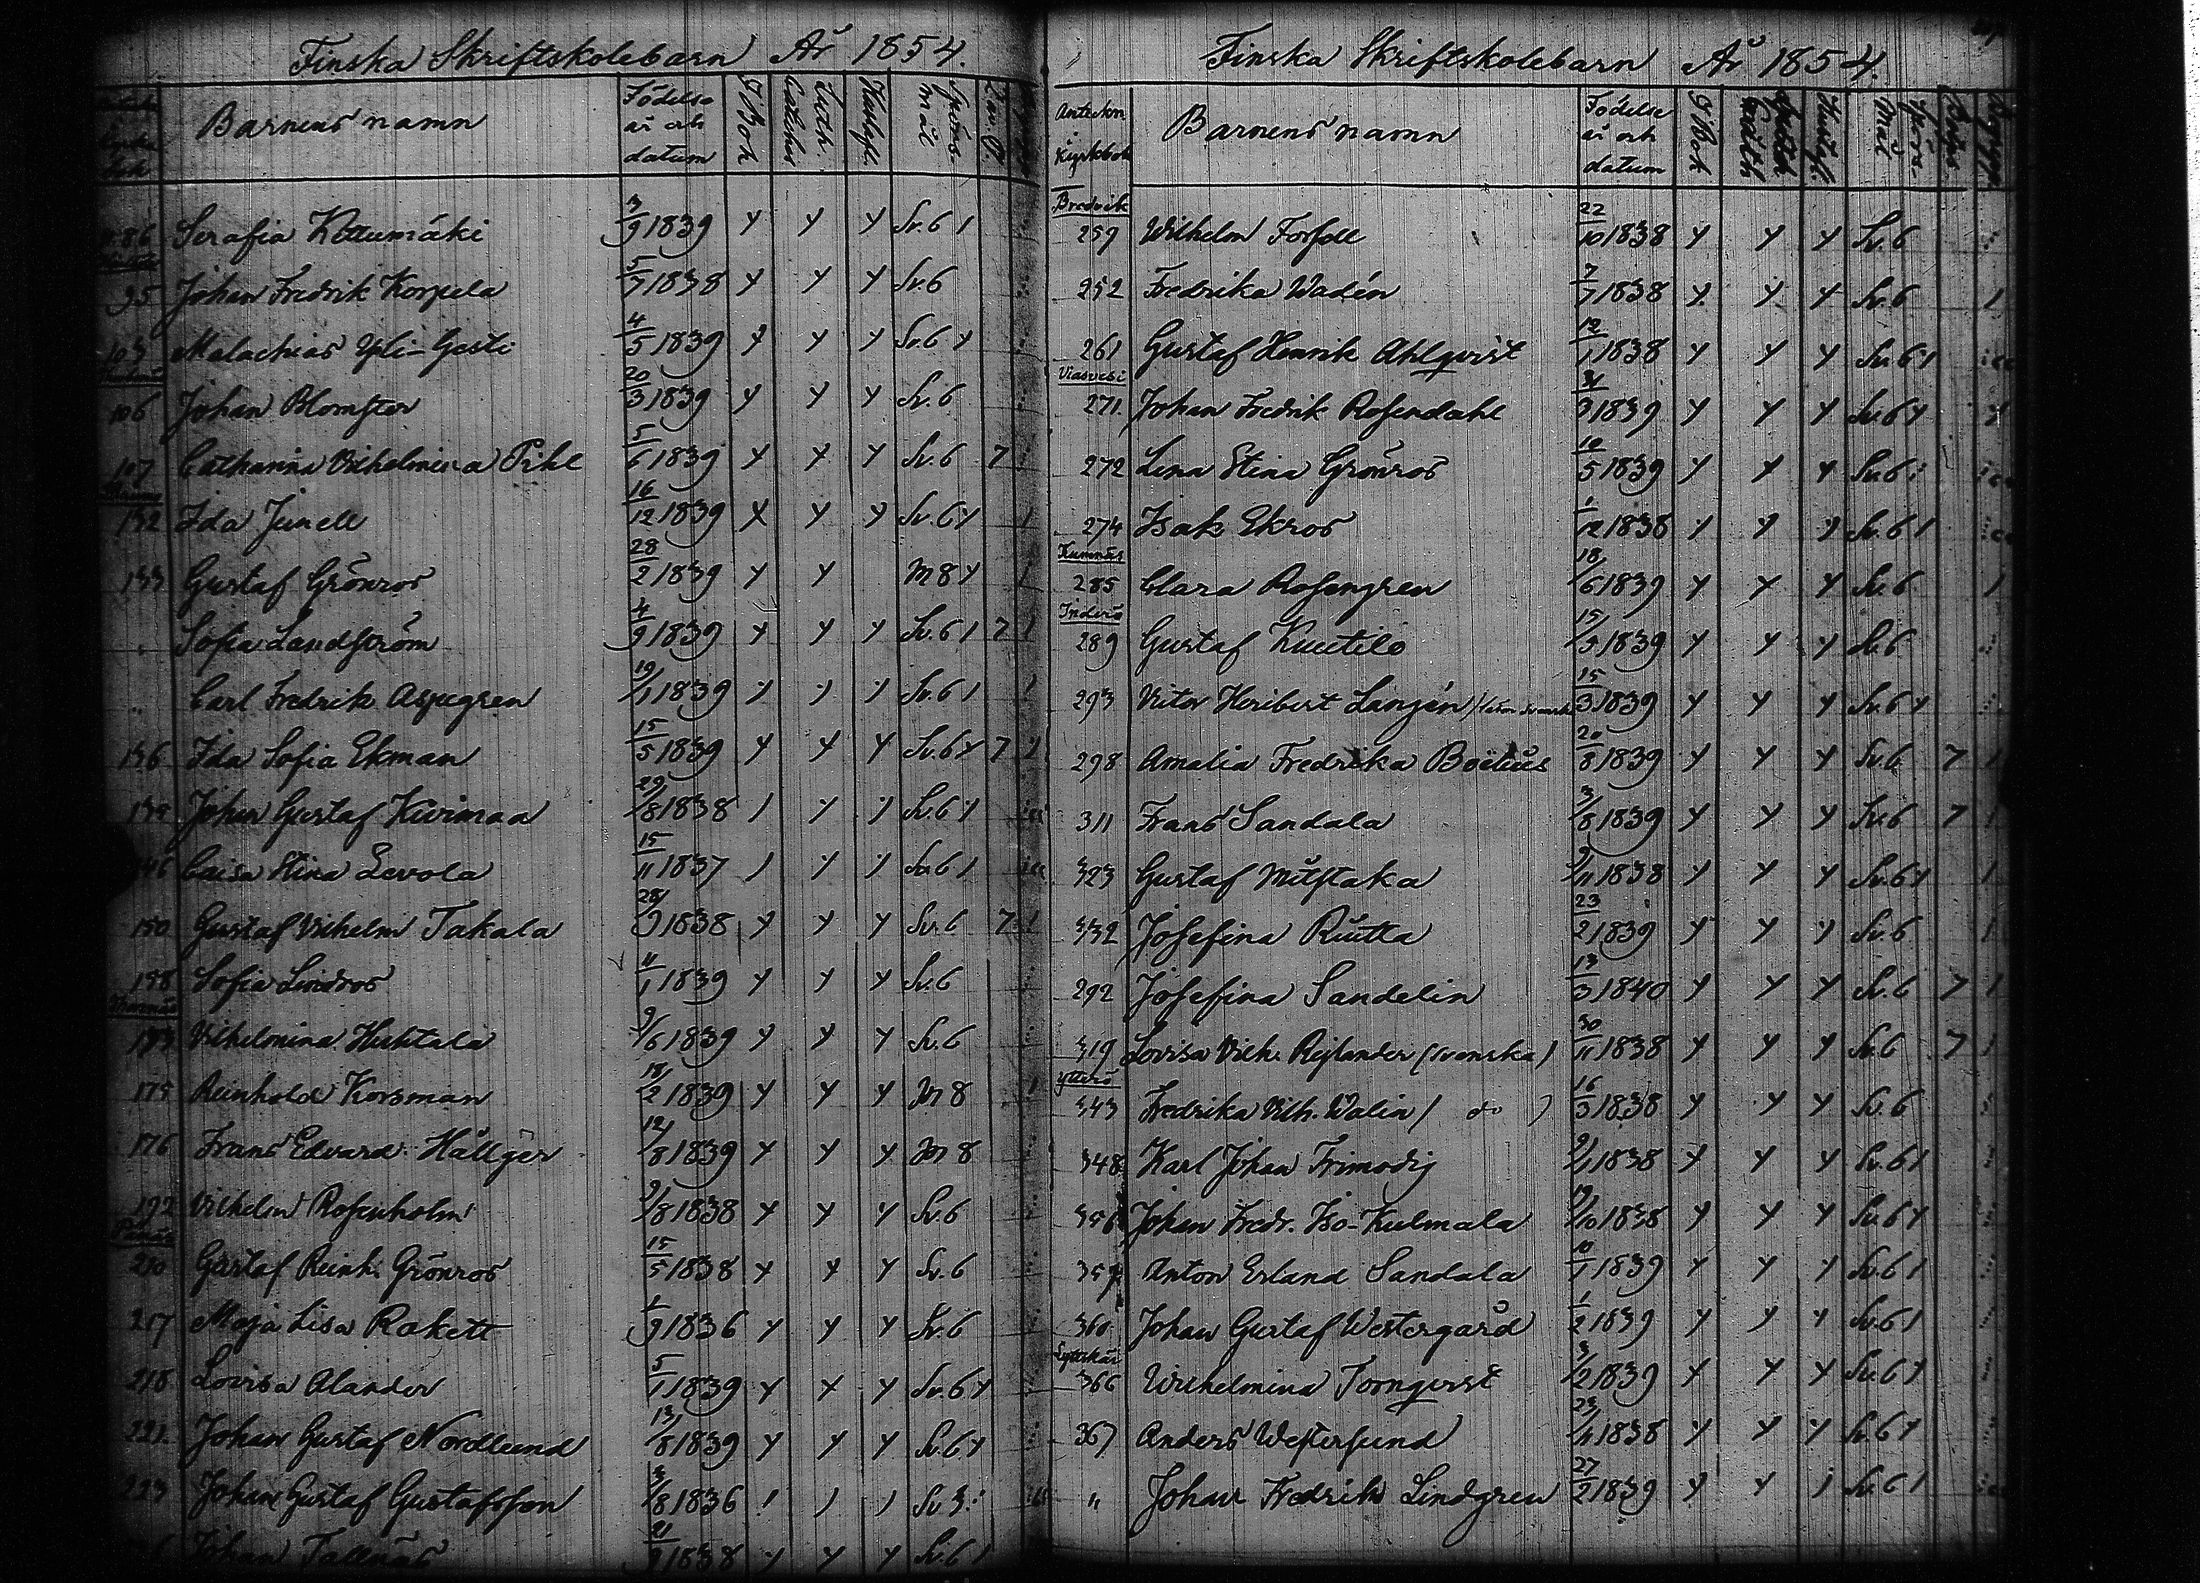 Finska Skriftskolebarn År 1854.
Barnens namn Födelse år och datum I Bok Luth. Cathches Hustafl. Spörs-mål
86 Serafia Kottumäki 3/9 1839 y y y Sv. 6 1
95 Johan Fredrik Korpela 5/7 1838 y y y Sv. 6
103 Malachias Yli-Gesti 4/5 1839 y y y Sv. 6 y
106 Johan Blomster 20/3 1839 y y y Sv. 6
107 Catharina Vilhelmina Pihl 5/6 1839 y y y Sv. 6 7
132 Ida Junell 16/12 1839 y y y Sv. 6 y 1
133 Gustaf Grönros 28/2 1839 y y M 8 y 1
" Sofia Landström 4/9 1839 y y y Sv. 6 1 7 1
" Carl Fredrik Aspegren 19/1 1839 y y y Sv. 6 1 1
136 Ida Sofia Ekman 15/5 1839 y y y Sv. 6 y 7 1
139 Johan Gustaf Kivimaa 29/8 1838 1 y y Sv. 6 y
146 Caisa Stina Levola 15/11 1837 1 y y Sv. 6 1
150 Gustaf Vilhelm Takala 28/9 1838 y y y Sv. 6 7 1
158 Sofia Lindros 11/1 1839 y y y Sv. 6
Vilhelmina Huhtala 9/6 1839 y y y Sv. 6
175 Reinhold Korsman 18/2 1839 y y y M 8 1
176 Frans Edvard Hällger 12/8 1839 y y y M 8
192 Vilhelm Rosenholm 9/8 1838 y y y Sv. 6
210 Gustaf Reinh. Grönros 15/5 1838 y y y Sv. 6
217 Maja Lisa Rakett 1/9 1836 y y y Sv. 6
218 Lovisa Alander 5/1 1839 y y y Sv. 6 y
221 Johan Gustaf Nordlund 13/8 1839 y y y Sv. 6 y
223 Johan Gustaf Gustafsson 3/8 1836 1 1 1 Sv. 3
Johan Tallnäs 21/9 1838 y y y Sv. 6 1
Finska Skriftskolebarn År 1854.
Anteckn i Kyrkbok Barnens namn Födelse år och datum I Bok Hustafl. Spörs-mål
Bredvik
259 Wilhelm Forsell 22/10 1838 y y y Sv. 6
252 Fredrika Wadén 7/7 1838 y y y Sv. 6 1
261 Gustaf Henrik Ahlqvist 12/1 1838 y y y Sv. 6 y
Viasvesi
271 Johan Fredrik Rosendahl 31/3 1839 y y y Sv. 6 y
272 Lena Stina Grönros 10/5 1839 y y y Sv. 6
274 Isak Ekros 1/12 1838 y y y Sv. 6 1
Kumnäs
285 Clara Rosengren 18/6 1839 y y y Sv. 6 1
Inderö
289 Gustaf Kuutilo 15/9 1839 y y y Sv. 6
293 Victor Heribert Langén 15/3 1839 y y y Sv. 6 y
298 Amalia Fredrika Boëlius 20/8 1839 y y y Sv. 6 7 1
311 Frans Sandala 3/8 1839 y y y Sv. 6 7 1
323 Gustaf Mustaka 9/11 1838 y y y Sv. 6 y 1
332 Josefina Ruutta 23/2 1839 y y y Sv. 6 1
292 Josefina Sandelin 13/3 1840 y y y Sv. 6 7 1
319 Lovisa Vilh. Rejlander (svenska) 30/11 1838 y y y Sv. 6 7 1
Ytterö
343 Fredrika Vilh. Walin ( do ) 16/3 1838 y y y Sv. 6
348 Karl Johan Frimodig 9/1 1838 y y y Sv. 6 1
356 Johan Fredr. Iso-Kulmala 19/10 1838 y y y Sv. 6 y
357 Anton Erland Sandala 10/1 1839 y y y Sv. 6 1
360 Johan Gustaf Westergård 1/2 1839 y y y Sv. 6 1
Lyttskär
366 Wilhelmina Tornqvist 3/2 1839 y y y Sv. 6 y
367 Anders Westerlund 23/11 1838 y y y Sv. 6 y
" Johan Fredrik Lindgren 27/2 1839 y y 1 Sv. 6 1